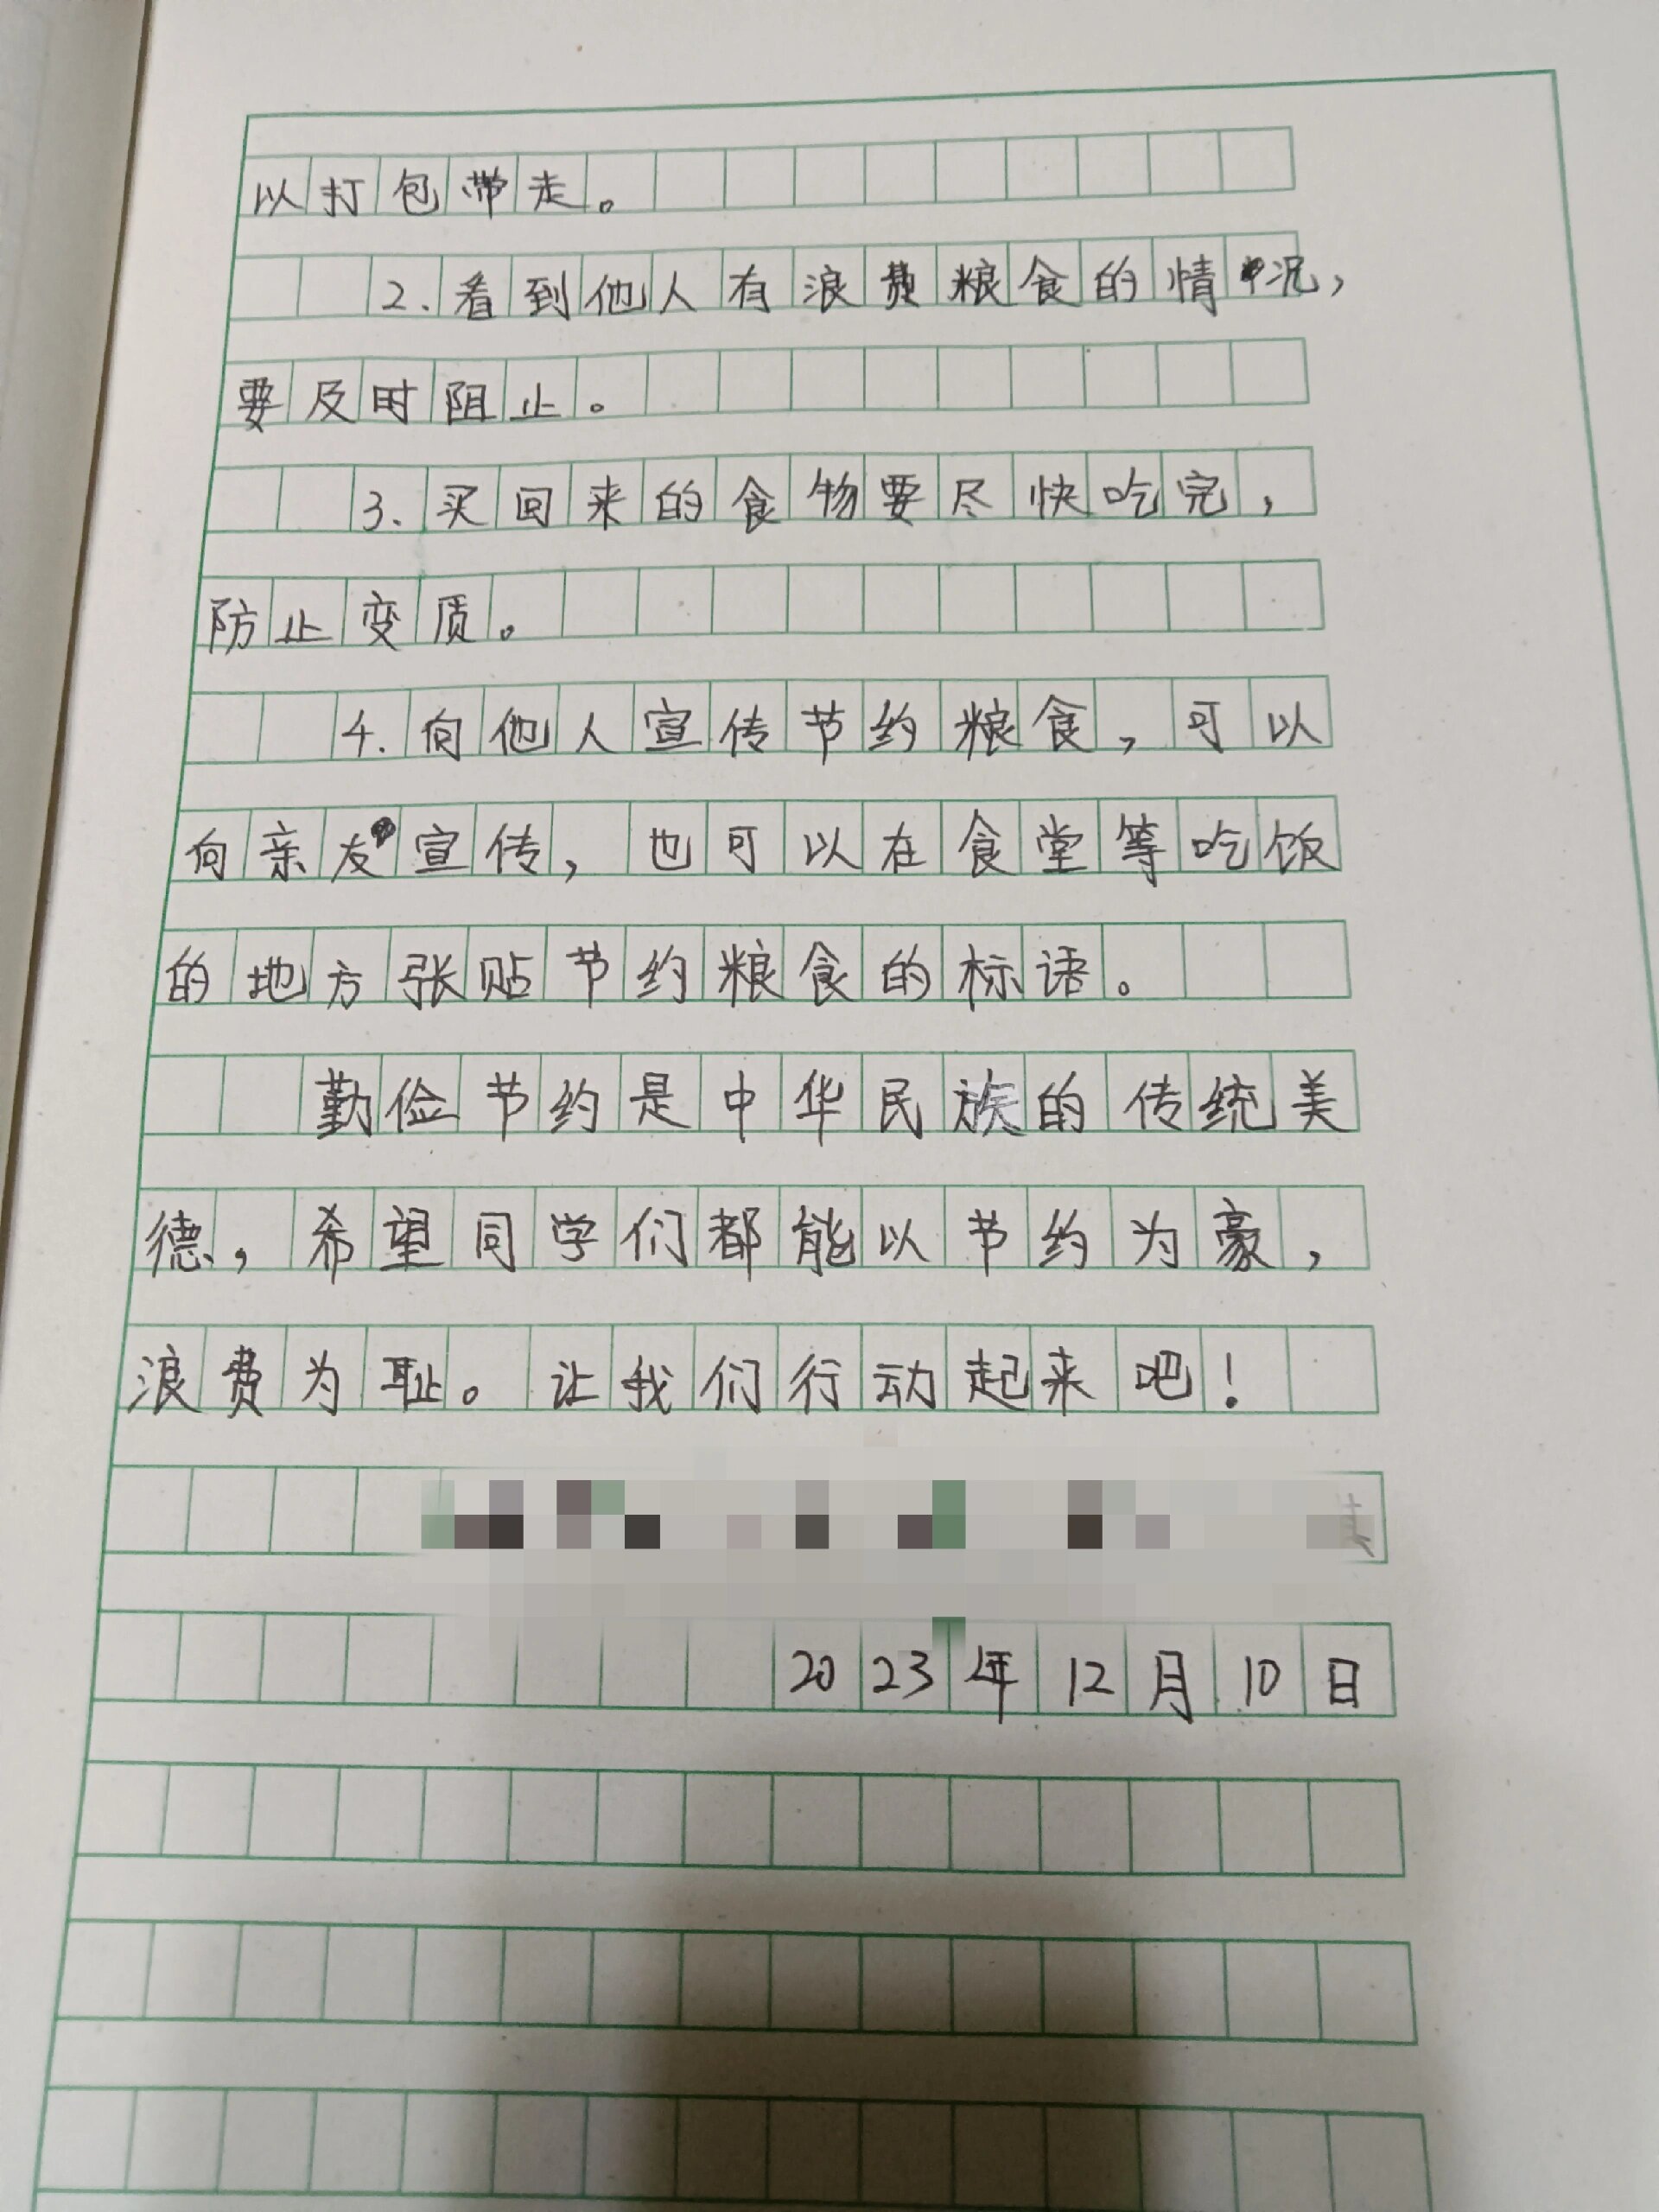 以打包带走。
2.看到他人有浪费粮食的情况，
要及时阻止。
3.买回来的食物要尽快吃完，
防止变质。
4.向他人宣传节约粮食，可以
向亲友宣传，也可以在食堂等吃饭
的地方张贴节约粮食的标语。
勤俭节约是中华民族的传统美
德，希望同学们都能以节约为豪，
浪费为耻。让我们行动起来吧！
2023年12月10日